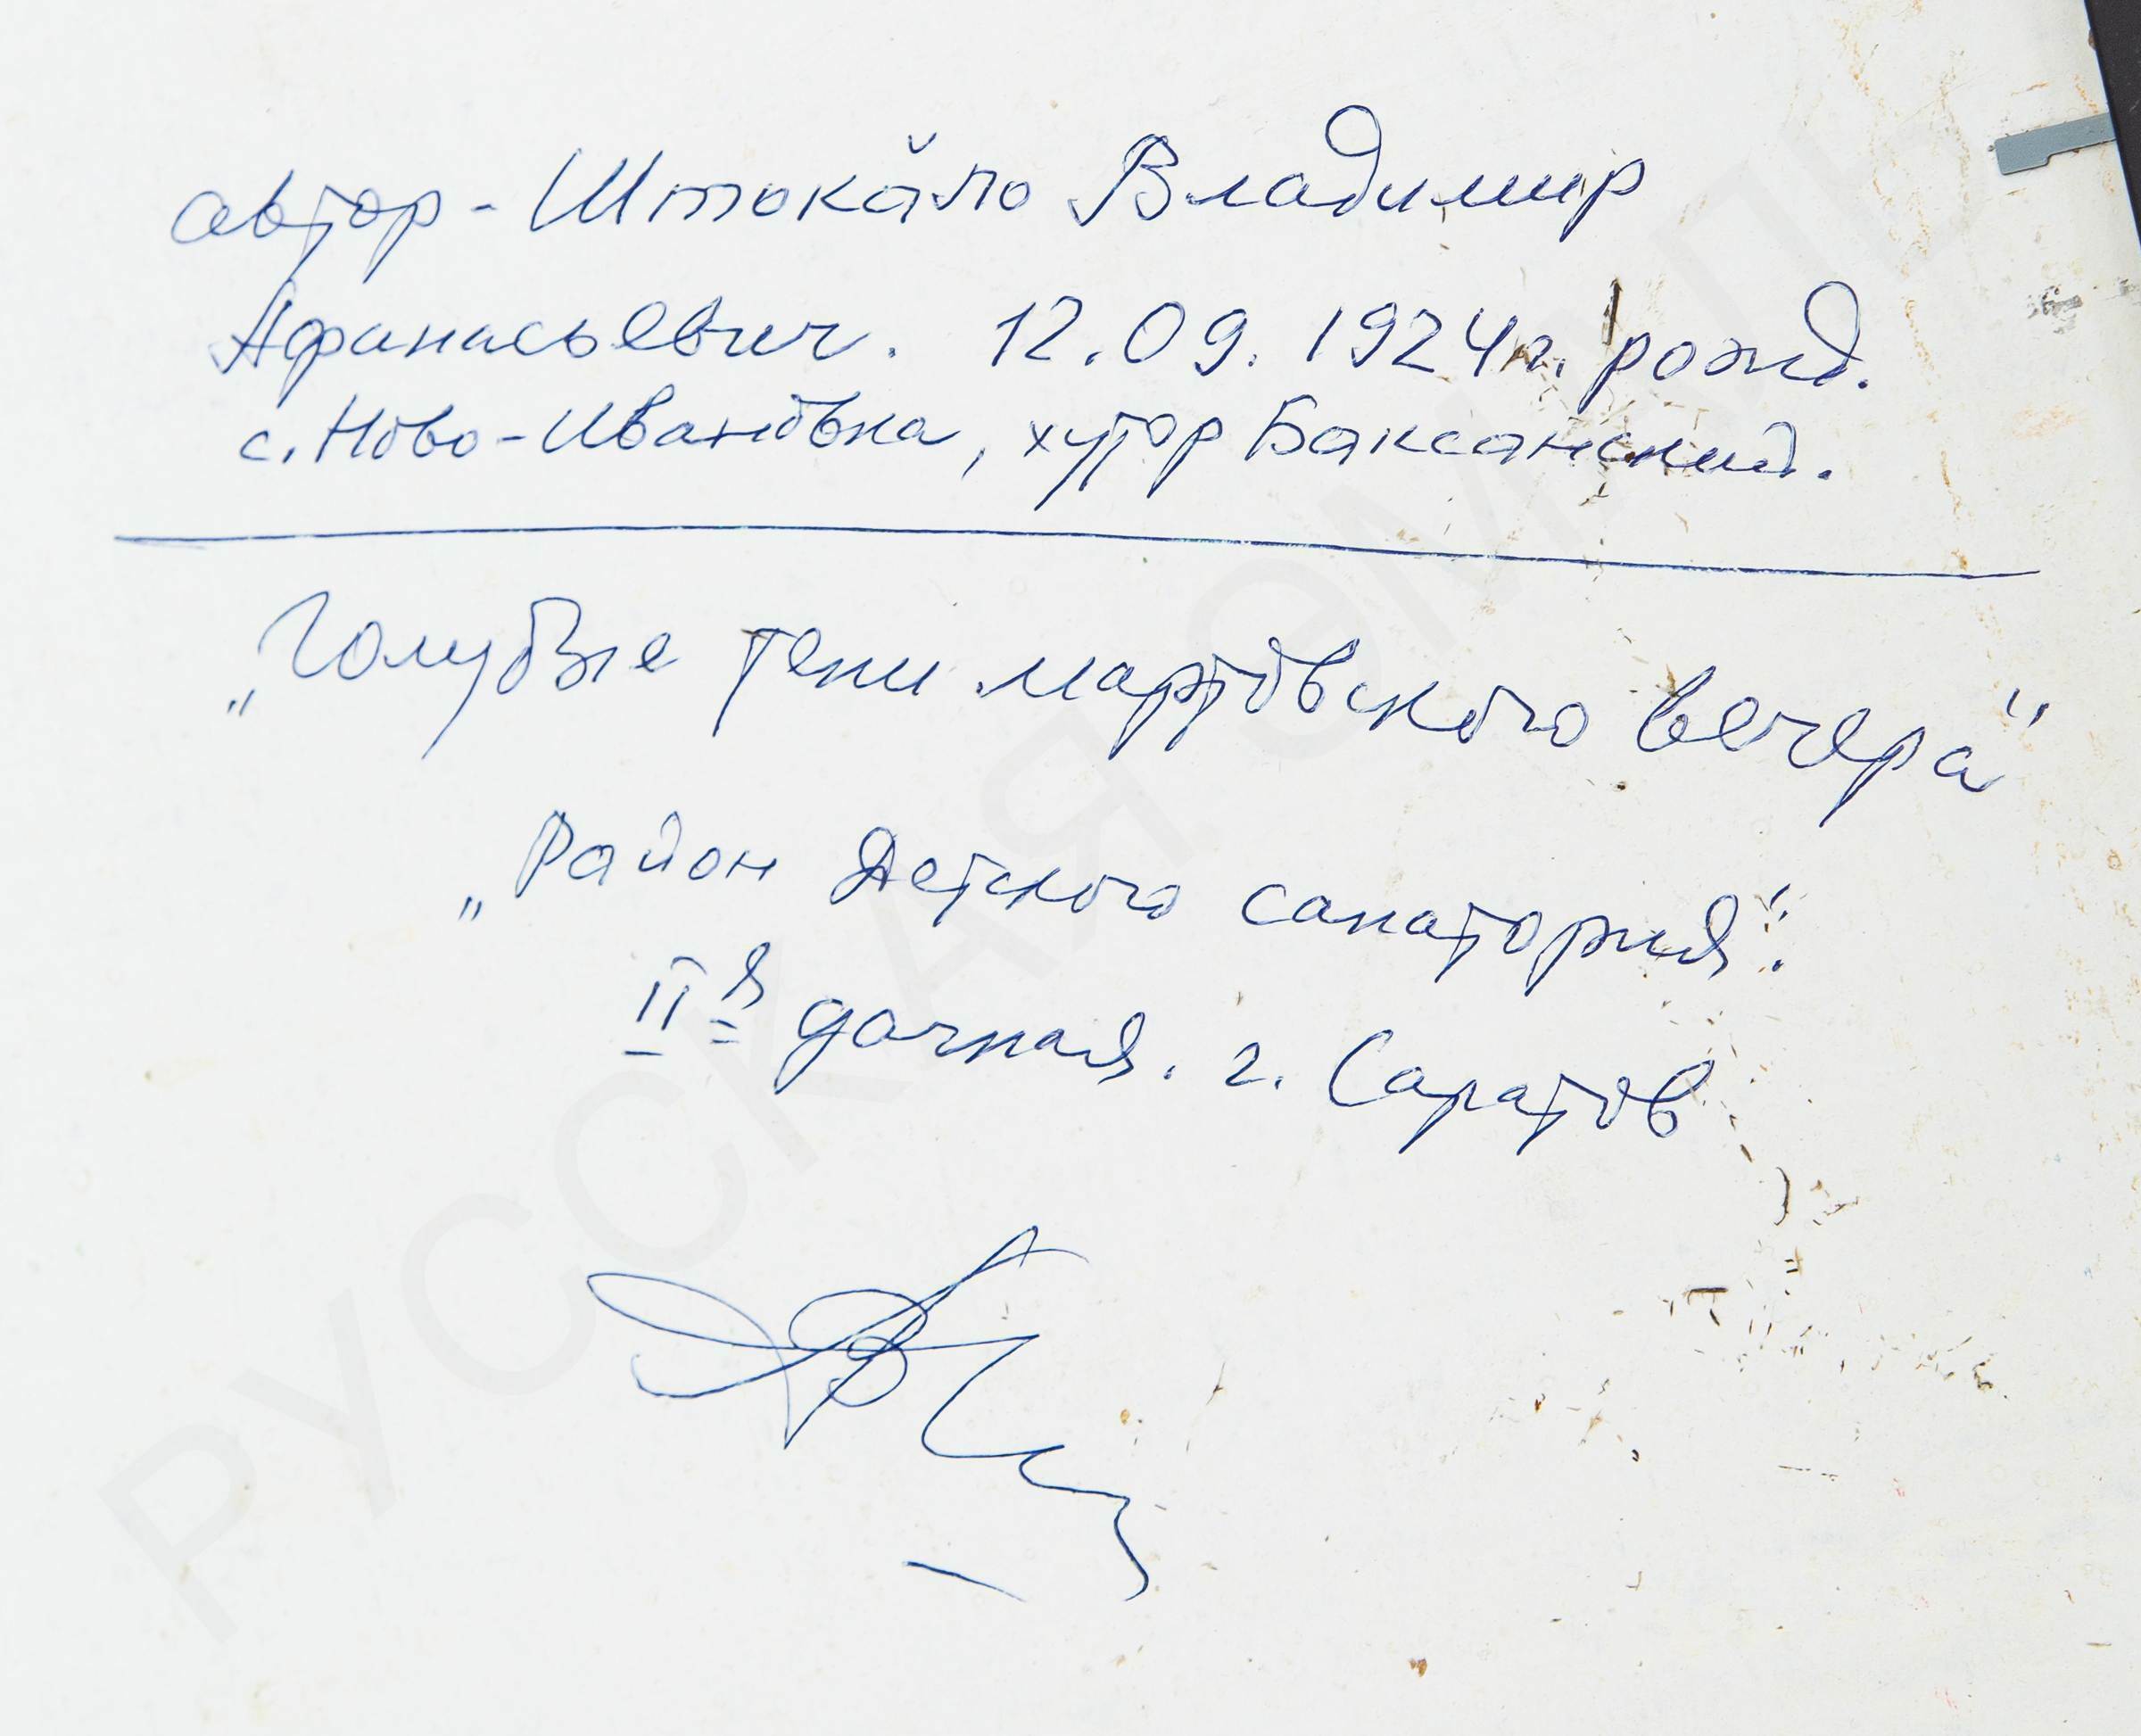 автор - Штокало Владимир
Афанасьевич. 12.09.1924г. рожд.
с. Ново-Ивановка, хутор Баксанский.
„Голубые тени мартовского вечера"
„Район Детского санатория".
II-я дачная. г. Саратов
РУССКАЯ ЭМАЛЬ